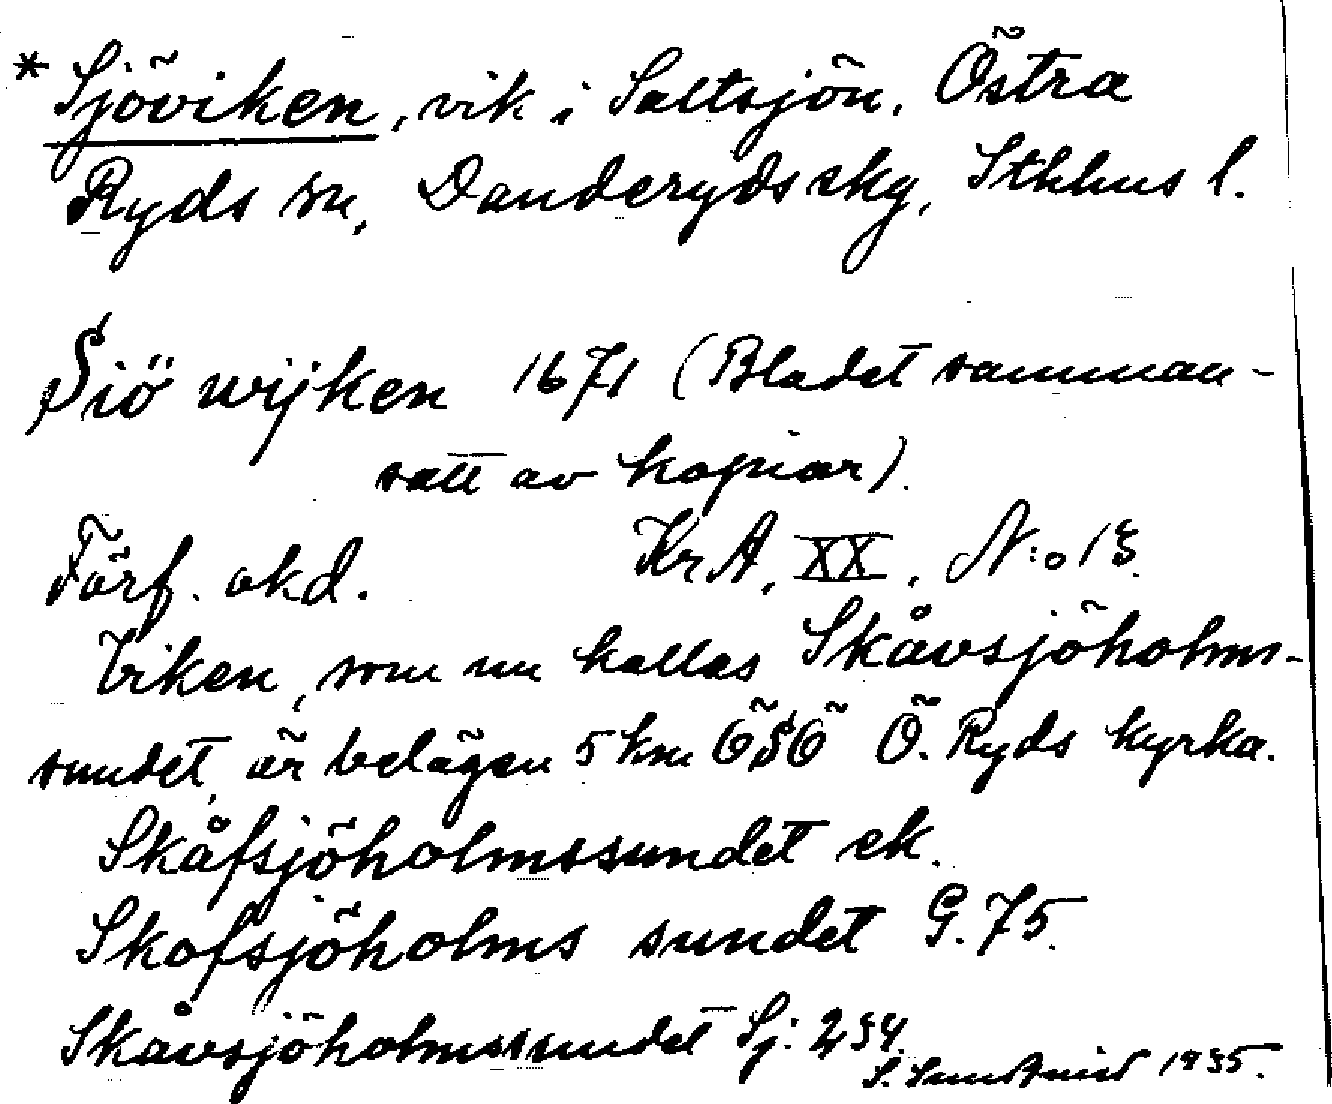 * Sjöviken, vik i Saltsjön, Östra
Ryds sn, Danderyds skg, Sthlms l.
Siö wijken 1671 (Bladet samman-
satt av kopior).
Förf. okd. KrA, XX, N:o 13.
Viken, som nu kallas Skåvsjöholms-
sundet, är belägen 5 km ÖSÖ Ö. Ryds kyrka.
Skåfsjöholmssundet ek.
Skofsjöholms sundet G. 75.
Skåvsjöholmssundet Sj. 234.
1935.